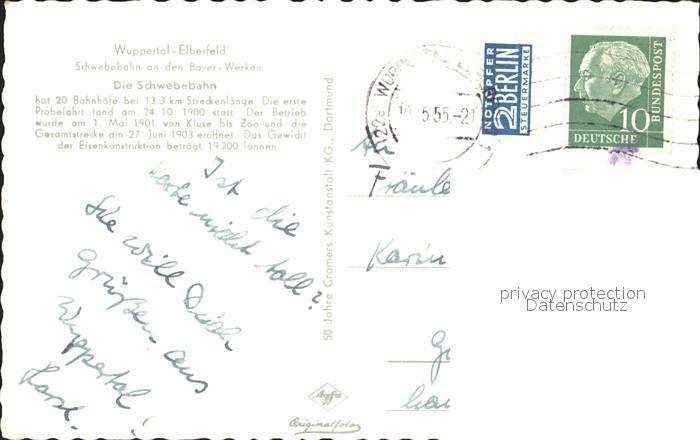 Wuppertal-Elberfeld
Schwebebahn an den Bayer-Werken
Die Schwebebahn
hat 20 Bahnhöfe bei 13,3 km Streckenlänge. Die erste
Probefahrt fand am 24. 10. 1900 statt. Der Betrieb
wurde am 1. Mai 1901 von Kluse bis Zoo und die
Gesamtstrecke am 27. Juni 1903 eröffnet. Das Gewicht
der Eisenkonstruktion beträgt 19 200 Tonnen.
Ist die
Karte nicht toll?
Sie will Dich
grüßen aus
Wuppertal
Horst.
50 Jahre Cramers Kunstanstalt KG., Dortmund
Agfa
Originalfoto
5.55.-21
NOTOPFER
2 BERLIN
STEUERMARKE
10
DEUTSCHE
BUNDESPOST
An
Fräule
Karin
privacy protection
Datenschutz